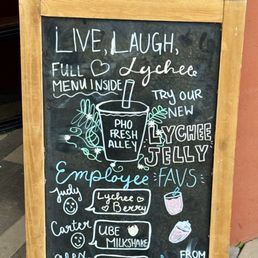 LIVE, LAUGH,
FULL Lychee
MENU INSIDE
TRY OUR
NEW
LYCHEE
JELLY
PHO
FRESH
ALLEY
Employee FAVS:
Judy
Lychee
Berry
Carter
UBE
MILKSHAKE
FROM
alex